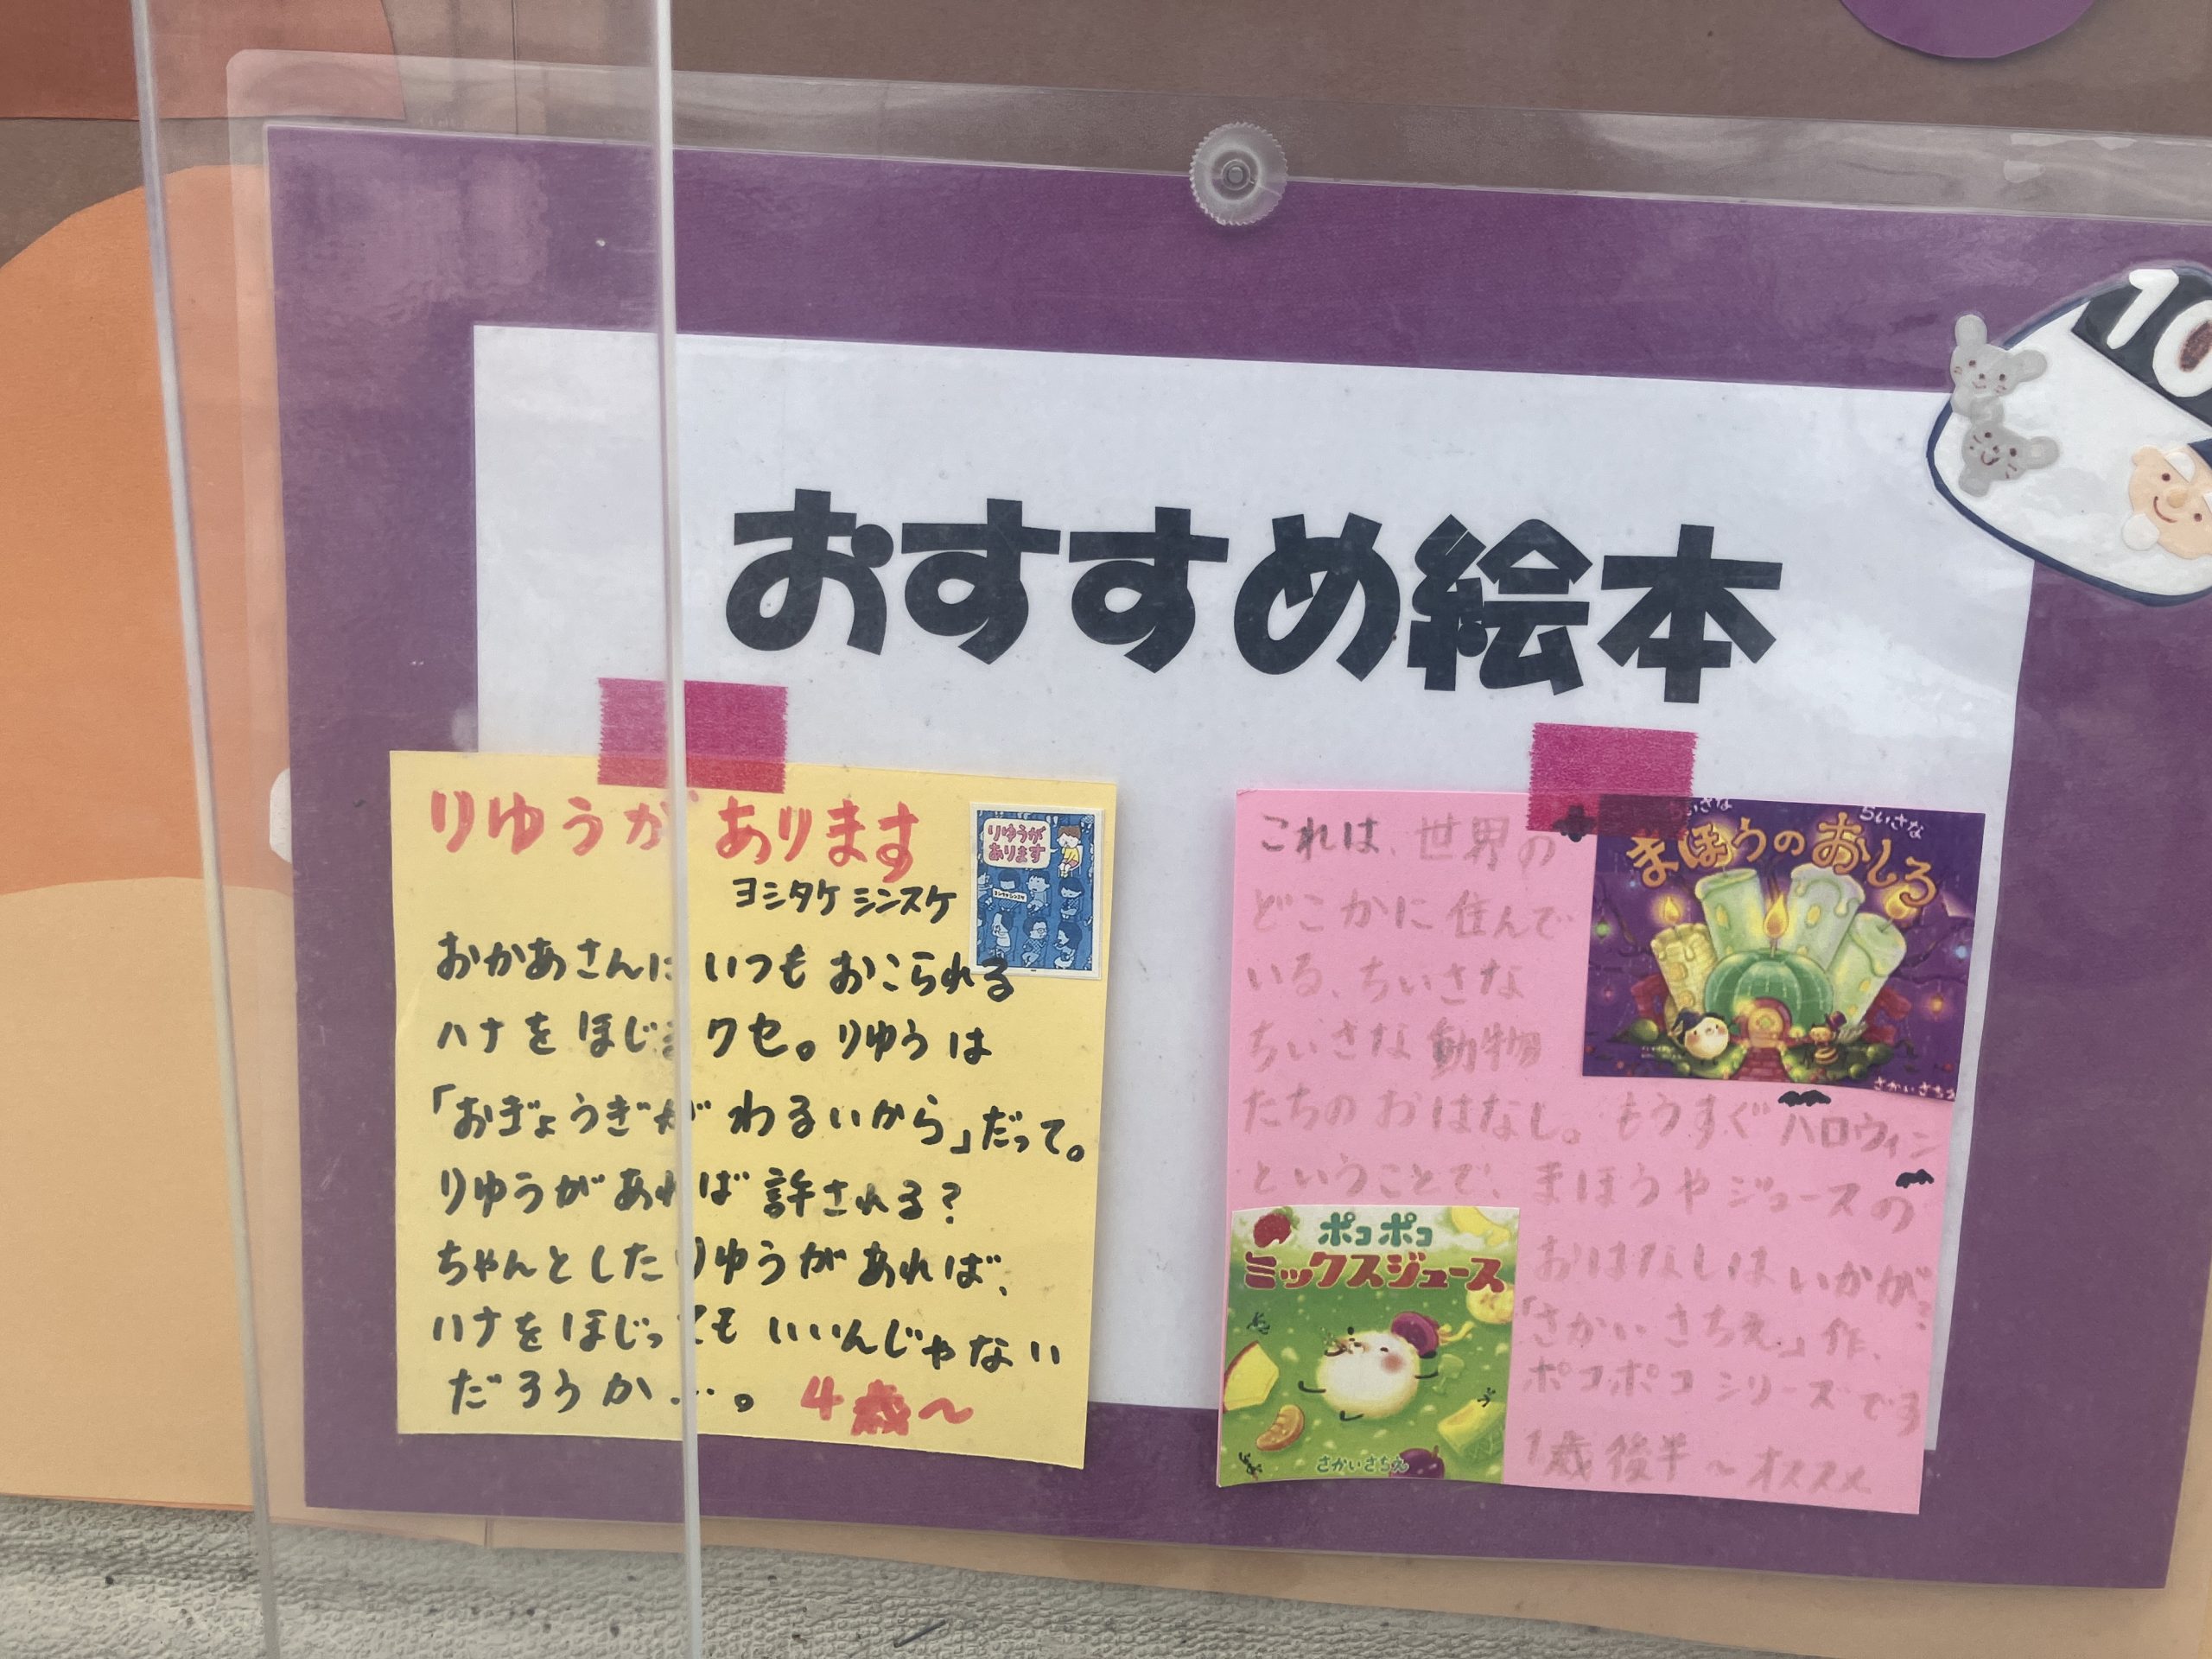 10
おすすめ絵本
りゆうが あります
ヨシタケ シンスケ
りゆうが
あります
おかあさんに いつも おこられる
ハナを ほじる クセ。りゆうは
「おぎょうぎが わるいから」だって。
りゆうが あれば 許される?
ちゃんとした りゆうが あれば、
ハナを ほじっても いいんじゃない
だろうか…。 4歳〜
これは、世界の
どこかに 住んで
いる、ちいさな
ちいさな 動物
たちの おはなし。もうすぐ ハロウィン
ということで、まほうや ジュースの
おはなしは いかが?
「さかい さちえ」作、
ポコポコ シリーズです
1歳後半〜オススメ
ちいさな ちいさな
まほうの おしろ
さかい さちえ
ポコポコ
ミックスジュース
さかい さちえ